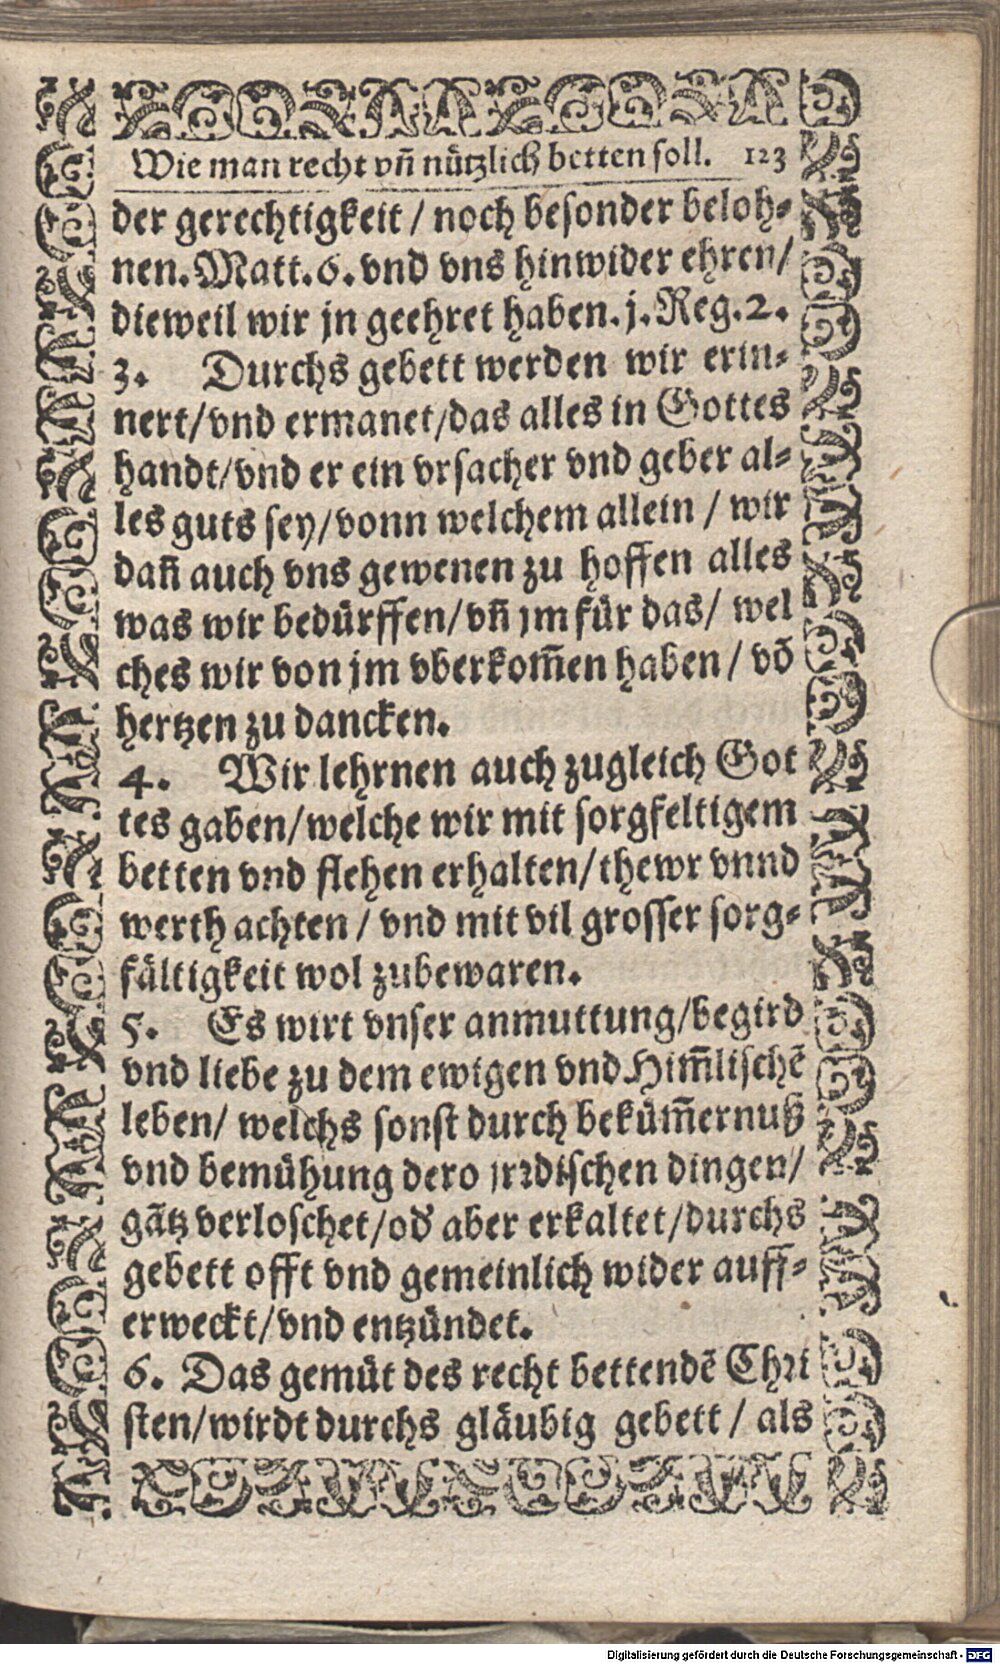 Wie man recht vñ nützlich betten soll. 123
der gerechtigkeit / noch besonder beloh-
nen. Matt. 6. vnd vns hinwider ehren/
dieweil wir jn geehret haben. j. Reg. 2.
3. Durchs gebett werden wir erin-
nert/vnd ermanet/das alles in Gottes
handt/vnd er ein vrsacher vnd geber al-
les guts sey/vonn welchem allein / wir
dañ auch vns gewenen zu hoffen alles
was wir bedürffen/vñ jm für das/ wel
ches wir von jm vberkom̃en haben / võ
hertzen zu dancken.
4. Wir lehrnen auch zugleich Got
tes gaben/welche wir mit sorgfeltigem
betten vnd flehen erhalten/thewr vnnd
werth achten / vnd mit vil grosser sorg-
fältigkeit wol zubewaren.
5. Es wirt vnser anmuttung/begird
vnd liebe zu dem ewigen vnd Him̃lischẽ
leben/ welchs sonst durch beküm̃ernuß
vnd bemühung dero jrrdischen dingen/
gãtz verloschet/od' aber erkaltet/durchs
gebett offt vnd gemeinlich wider auff-
erweckt/vnd entzündet.
6. Das gemüt des recht bettendẽ Chri
sten/wirdt durchs gläubig gebett / als
Digitalisierung gefördert durch die Deutsche Forschungsgemeinschaft - DFG